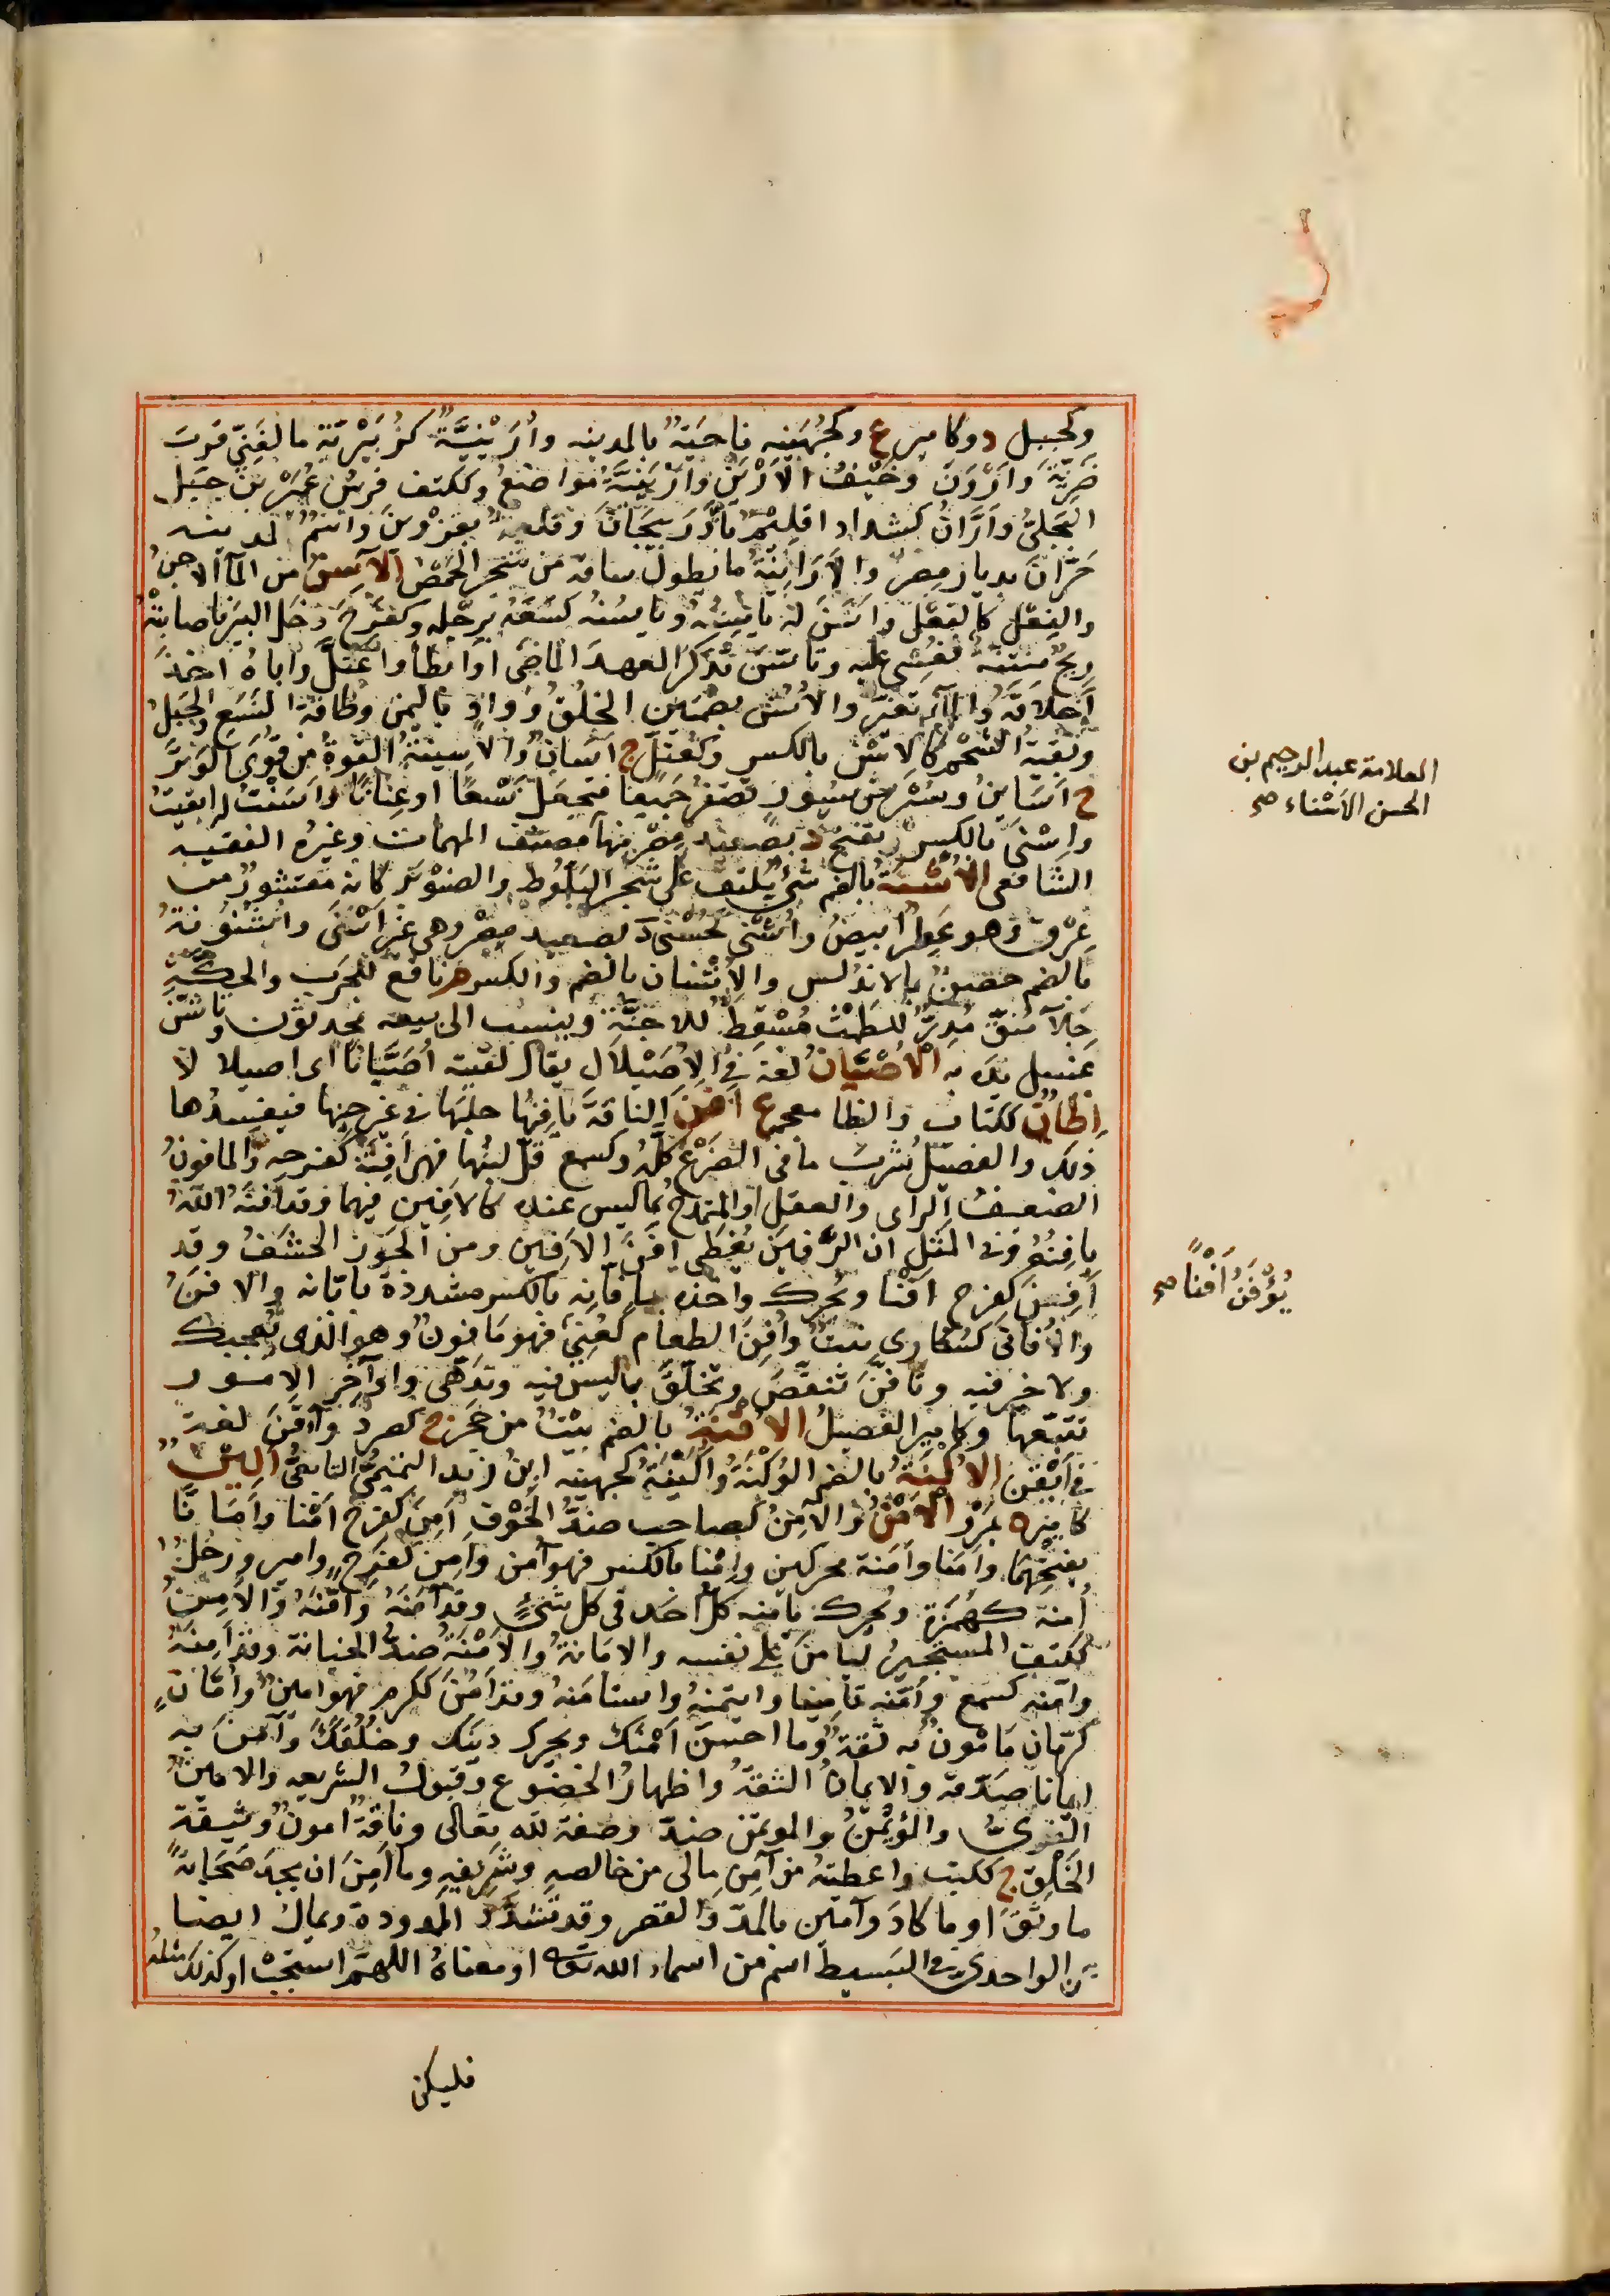 وكجبل د وكامير ع وكجهينه ناحية بالمدينه وأرينية كزبيرية ما لغنى قرب
ضرية وأرون وخيف الأرين وارينية مواضع وككتف فرس عمير بن جبل
البجلى وأران كشداد اقليم باذربيجان وقلعة بقزوين واسم لمدينه
حران بديار مضر والارانية ما يطول ساقه من شجر الحمض الآسن من المآ الآجن
والفعل كالفعل واسن له يأسنه ويأسنه كسعه برجله وكفرح دخل البئر فاصابته
ريح منتنة فغشى عليه وتاسن تذكر العهد الماضى او ابطأ واعتل واباه اخذ
اخلاقه والمآ تغير والاسن بضمتين الخلق وواد باليمن وطاقة النسع والحبل
وبقية الشحم كالاسن بالكسر وكعتل ج آسان والاسينة القوة من قوى الوتر
ج اساين وسير من سيور تضفر جميعا فتجعل نسعا او عنانا واسنت له ابقيت
واسنى بالكسر ويفتح د بصعيد مصر منها مصنف المهمات وغيره الفقيه
الشافعى الاشنة بالضم شئ يلتف على شجر البلوط والصنوبر كانه مقشور من
عرق وهو عطر ابيض واشنى كحسنى ة بصعيد مصر وهى غير اسنى واشنونة
بالضم حصن بالاندلس والاشنان بالضم والكسر م نافع للجرب والحكة
جلآ منق مدر للطمث مسقط للاجنة وينسب الى بيعه محدثون وتاشن
غسل يده به الأصيان لغة فى الأصيلال يقال لقيته أصيانا اى اصيلا لا
إظان ككتاب والظا معجمه ع افن الناقة يافنها حلبها فى غير حينها فيفسدها
ذلك والفصيل شرب ما فى الضرع كله وكسمع قل لبنها فهى افنة كفرحه والمافون
الضعيف الراى والعقل او المتمدح بما ليس عنده كالافين فيهما وقد افنه الله
يافنه وفى المثل ان الرقين يغطى افن الافين ومن الجوز الحشف وقد
أفن كفرح افنا ويحرك واخذه بإفانه بالكسر مشددة بابانه والافن
والأفانى كسكارى نبت وافن الطعام كعنى فهو مافون وهو الذى يعجبك
ولا خير فيه وتافن تنقص وتخلق بما ليس فيه وتدهى واواخر الامور
تتبعها وكامير الفصيل الاقنة بالضم بيت من حجر ج كصرد وآقن لغة
فى ايقن الاكنة بالضم الوكنة وأكينة كجهينه ابن زيد التميمى التابعى الين
كامير ة بمرو الأمن والآمن كصاحب ضد الخوف أمن كفرح امنا وأمانا
بفتحهما وامنا وامنة محركين وإمنا بالكسر فهو آمن وامن كفرح وامير ورجل
أمنة كهمزة ويحرك يامنه كل احد فى كل شئ وقد آمنه وأمنه والأمن
ككتف المستجير ليامن على نفسه والامانة والأمنة ضد الخيانة وقد امنه
وامنه كسمع وأمنه تامينا وايتمنه واستامنه وقد امن ككرم فهو امين وامان
كرمان مامون به ثقة وما احسن أمنك ويحرك دينك وخلقك وآمن به
ايمانا صدقه والايمان الثقة واظهار الخضوع وقبول الشريعه والامين
القوى والمؤتمن والموتمن ضد وصفة لله تعالى وناقة امون وثيقة
الخلق ج ككتب واعطيته من آمن مالى من خالصه وشريفه وما امن ان يجد صحابة
ما وثق او ما كاد وآمين بالمد والقصر وقد تشدد الممدودة ويمال ايضا
عن الواحدى فى البسيط اسم من اسماء الله تعالى او معناه اللهم استجب او كذلك مثله
فليكن
العلامة عبد الرحيم بن
الحسن الاسناء صح
يؤفن افنا صح